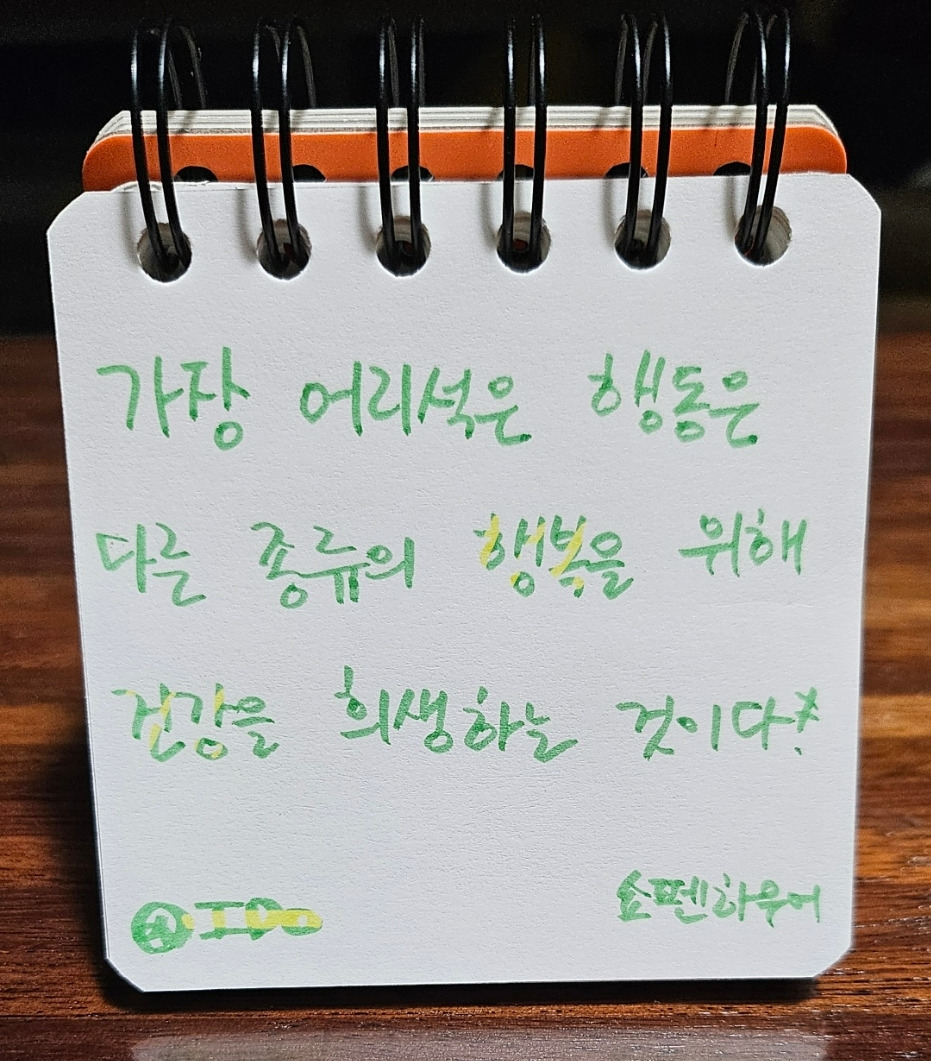 가장 어리석은 행동은
다른 종류의 행복을 위해
건강을 희생하는 것이다!
쇼펜하우어